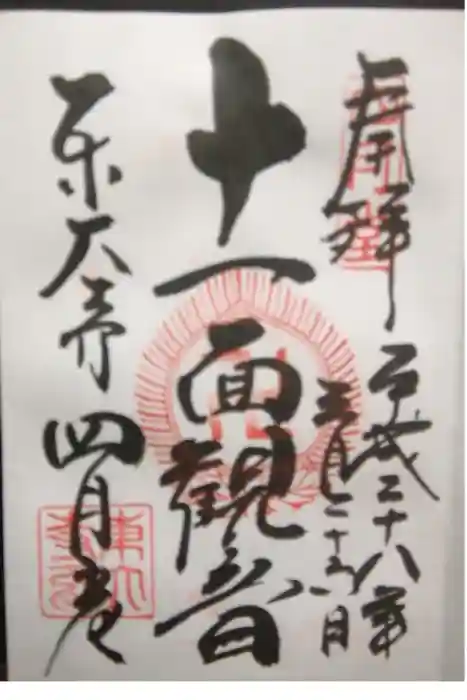 奉拝
平成二十八年
三月二十六日
十一面観音
東大寺四月堂